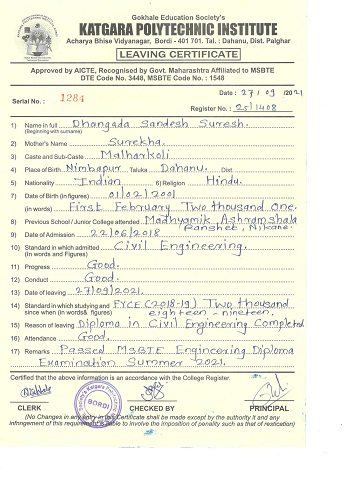 Gokhale Education Society's
KATGARA POLYTECHNIC INSTITUTE
Acharya Bhise Vidyanagar, Bordi - 401 701. Tal.: Dahanu, Dist. Palghar
LEAVING CERTIFICATE
Approved by AICTE, Recognised by Govt. Maharashtra Affiliated to MSBTE
DTE Code No. 3448, MSBTE Code No. : 1548
Date : 27/09/2021
Serial No. : 1284
Register No. : 25/1408
1) Name in full Dhangada Sandesh Suresh.
(Beginning with surname)
2) Mother's Name Surekha.
3) Caste and Sub-Caste Malharkoli
4) Place of Birth Nimbapur Taluka Dahanu. Dist
5) Nationality Indian 6) Religion Hindu.
7) Date of Birth (in figures) 01/02/2001
(in words) First February Two thousand One.
8) Previous School / Junior College attended Madhyamik Ashramshala
Ranshet, Nikane
9) Date of Admission 22/06/2018
10) Standard in which admitted Civil Engineering.
(In words and Figures)
11) Progress Good.
12) Conduct Good.
13) Date of leaving 27/09/2021.
14) Standard in which studying and FYCE (2018-19) Two thousand
since when (in words& figures) eighteen - nineteen.
15) Reason of leaving Diploma in Civil Engineering Completed
16) Attendance Good.
17) Remarks Passed MSBTE Engineering Diploma
Examination Summer 2021.
Certified that the above information is an accordance with the College Register.
BORDI
CLERK CHECKED BY PRINCIPAL
(No Changes in any entry in this Certificate shall be made except by the authority it and any
infringement of this requirement is liable to involve the imposition of penality such as that of restication)